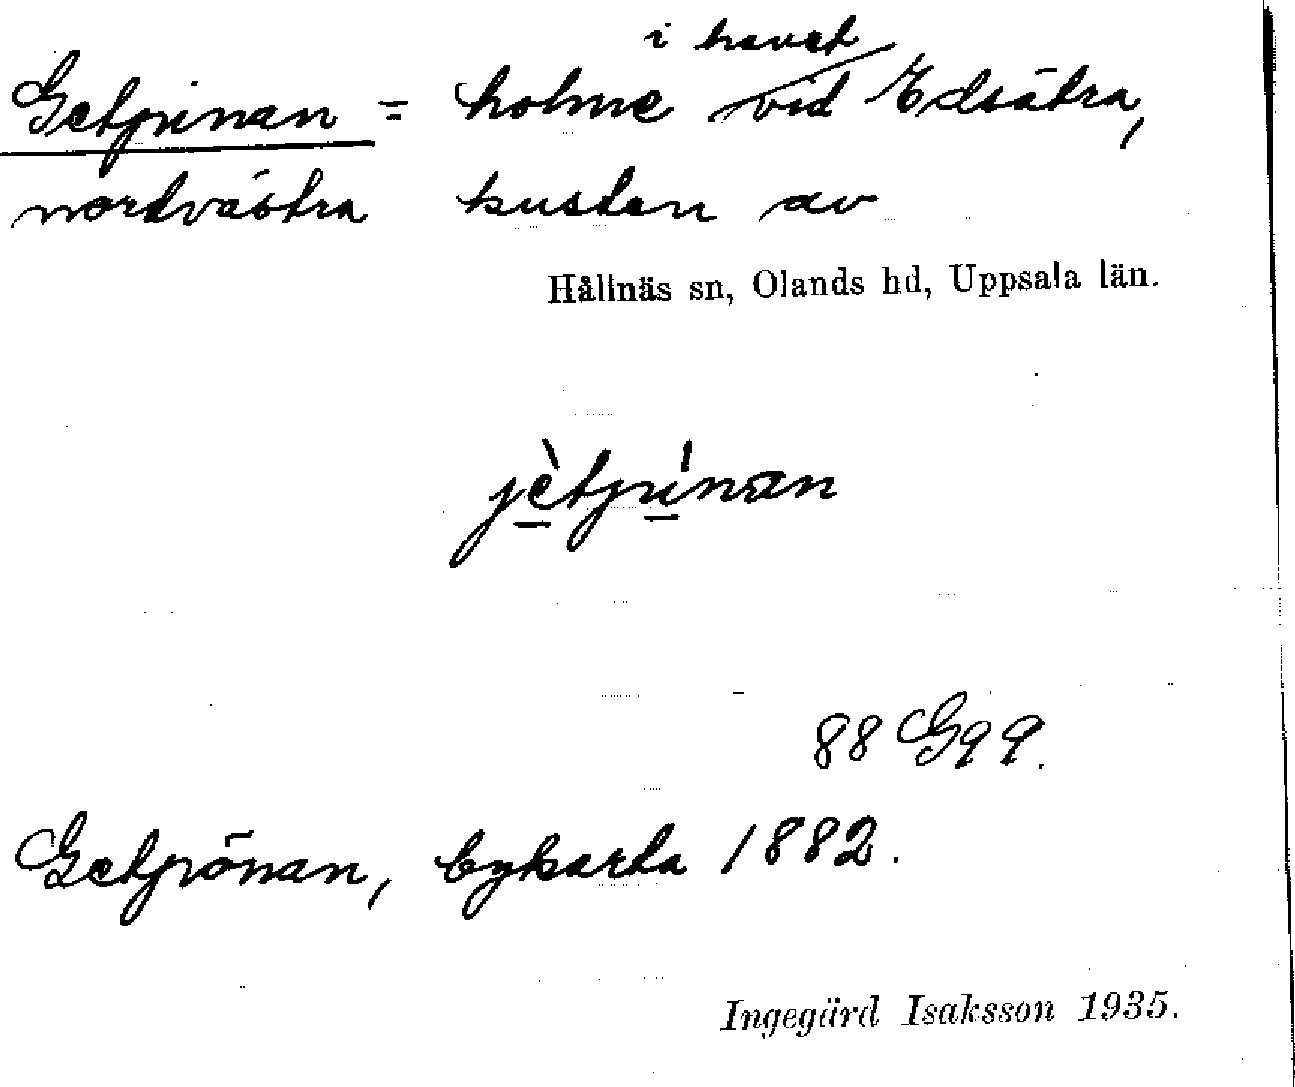 i havet
Getpinan = holme vid Edsätra,
nordvästra kusten av
Hållnäs sn, Olands hd, Uppsala län.
jètpínan
88 G 9 9.
Getpönan, bykarta 1882.
Ingegärd Isaksson 1935.